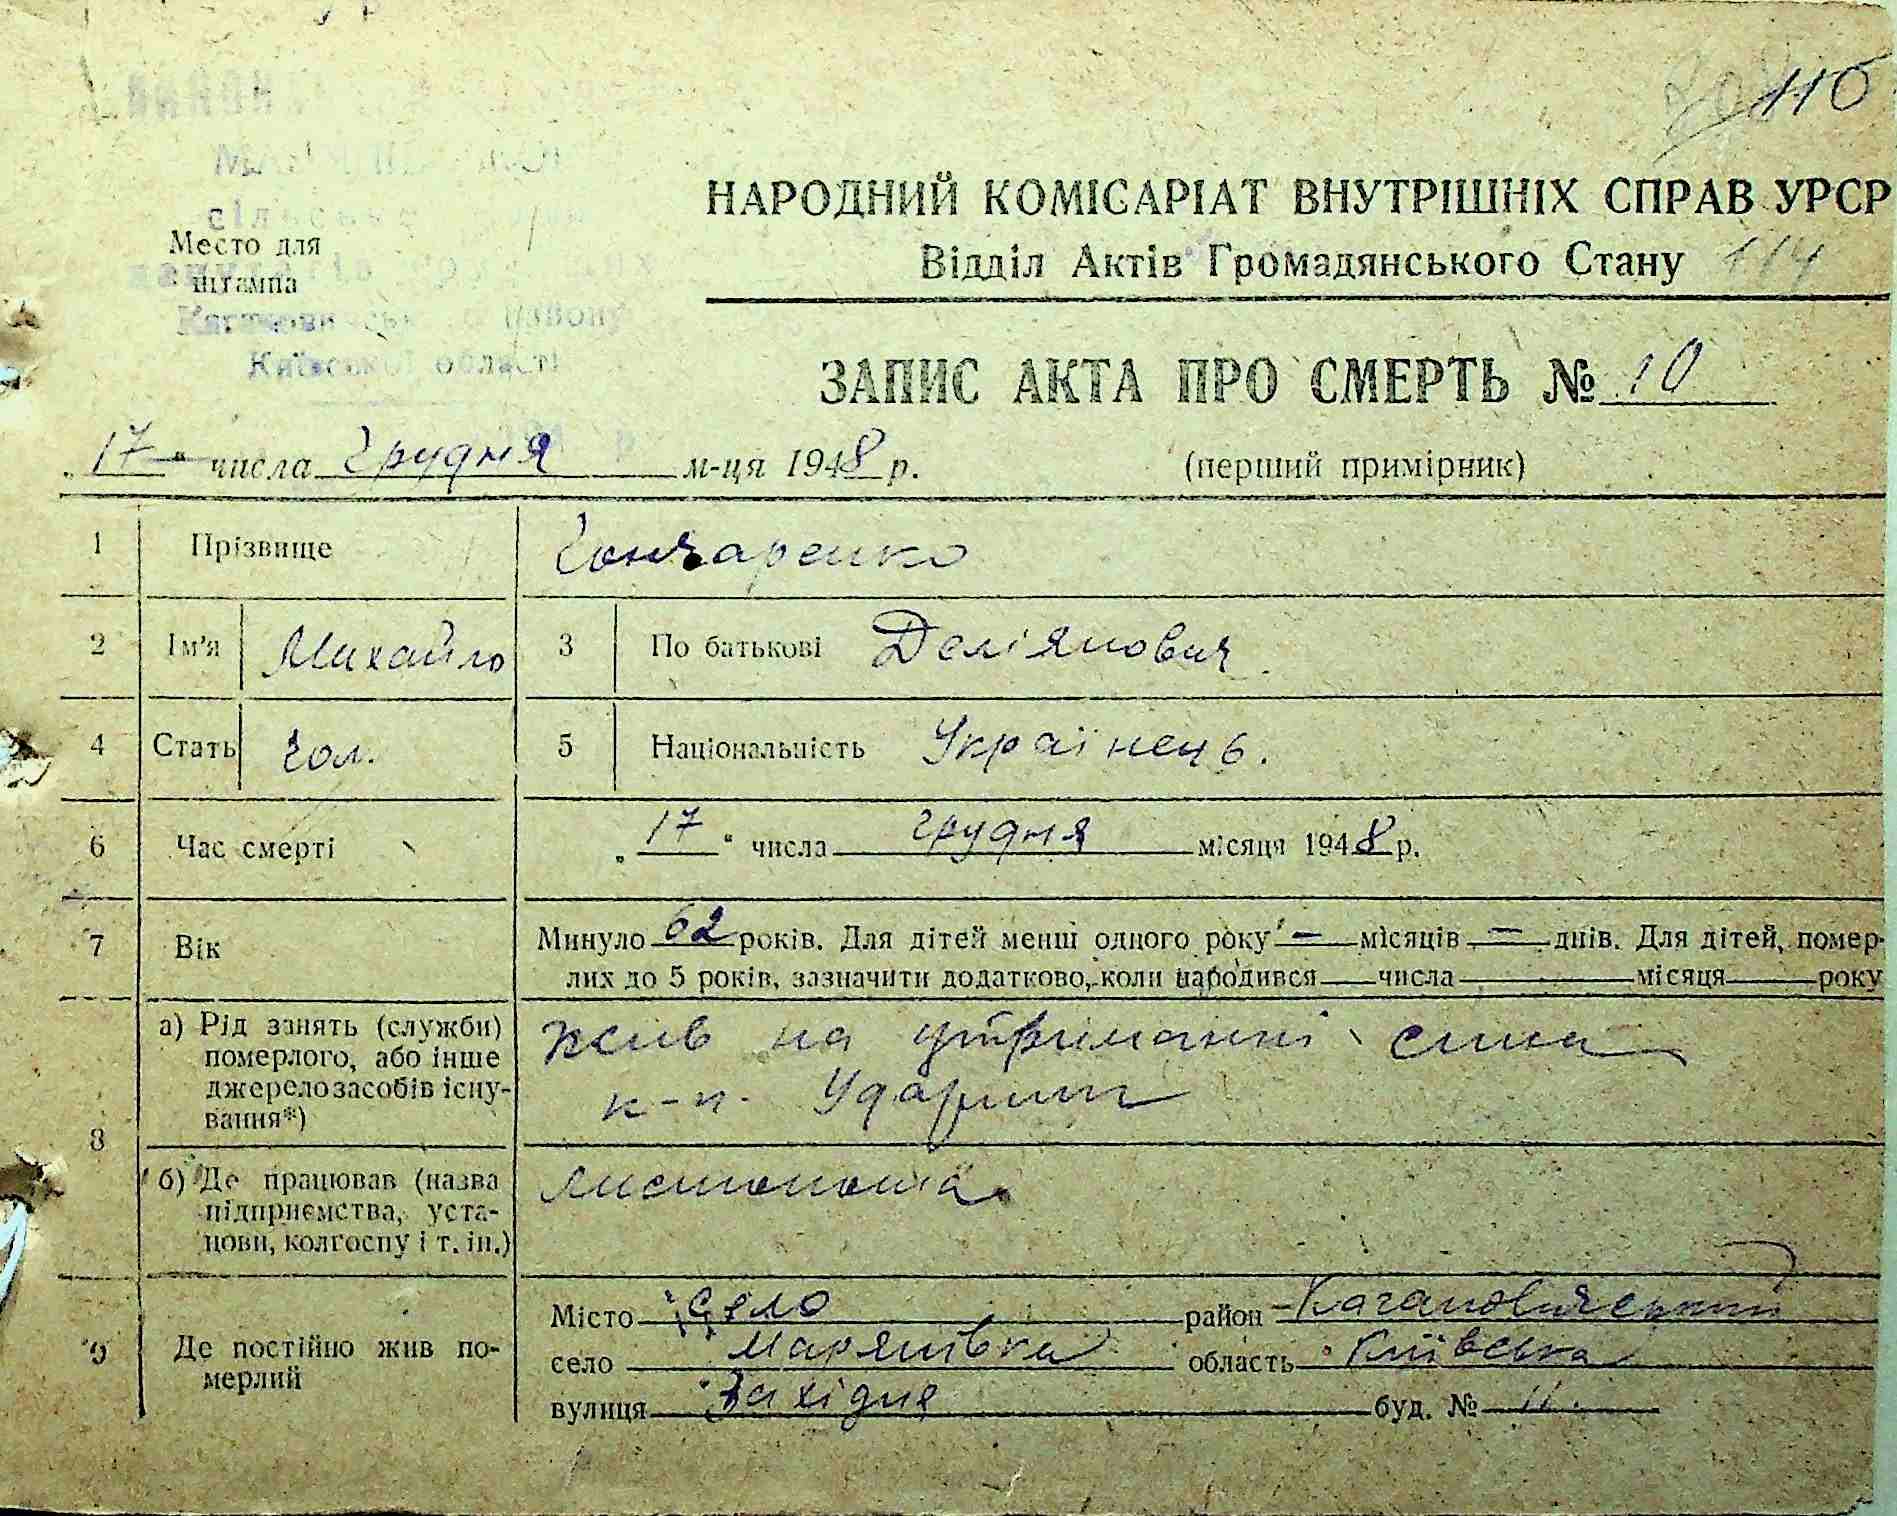 116
НАРОДНИЙ КОМІСАРІАТ ВНУТРІШНІХ СПРАВ УРСР
Відділ Актів Громадянського Стану 114
Место для
штампа
Київської області
ЗАПИС АКТА ПРО СМЕРТЬ № 10
„17“ числа Грудня м-ця 1948 р. (перший примірник)
1 Прізвище Гончаренко
2 Ім'я Михайло 3 По батькові
4 Стать чол. 5 Національність Українець.
6 Час смерті „17“ числа грудня місяця 1948 р.
7 Вік Минуло 62 років. Для дітей менш одного року — місяців — днів. Для дітей, помер-
лих до 5 років, зазначити додатково, коли народився числа місяця року
8 а) Рід занять (служби) померлого, або інше джерело засобів існу-вання*) жив на утриманні сина
к-п.
б) Де працював (назва підприємства, уста-нови, колгоспу і т. ін.) листоноша.
9 Де постійно жив по-мерлий
Місто село район Кагановичський
село Мар'янівка область Київська
вулиця Західня буд. № 11.